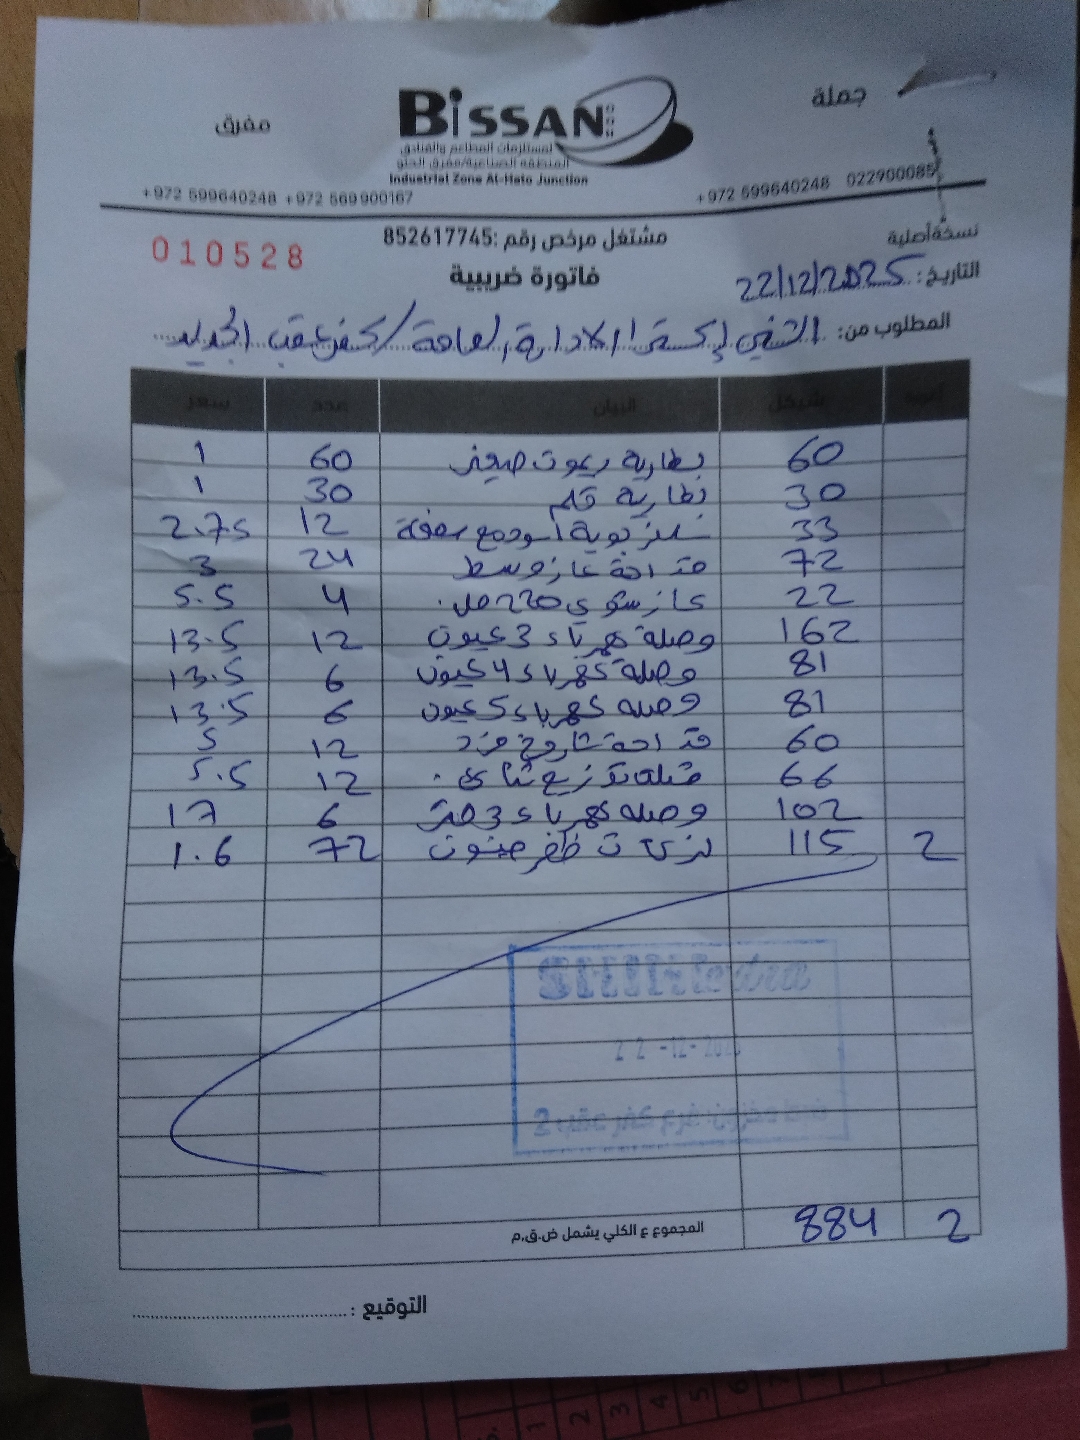 جملة
BISSAN
مفرق
لمستلزمات المطاعم والفنادق
المنطقة الصناعية/مفرق الحلو
Industrial Zone Al-Helo Junction
+972 599640248 022900085
+972 599640248 +972 569900167
نسخة أصلية
مشتغل مرخص رقم :852617745
010528
فاتورة ضريبية
التاريخ: 22/12/2025
المطلوب من: الشني إكسترا الادارة العامة / كفر عقب الجديد
أغورة شيكل البيان عدد سعر
60 بطارية ريموت صغير 60 1
30 بطارية قلم 30 1
33 أسود مع 12 2.75
72 قداحة غاز وسط 24 3
22 غاز 220 مل. 4 5.5
162 وصلة كهرباء 3 عيون 12 13.5
81 وصلة كهرباء 4 عيون 6 13.5
81 وصلة كهرباء 5 عيون 6 13.5
60 قداحة 12 5
66 12 5.5
102 وصلة كهرباء 3 متر 6 17
2 115 72 1.6
22-12-20
فرع كفر عقب 2
المجموع ع الكلي يشمل ض.ق.م
884 2
التوقيع :